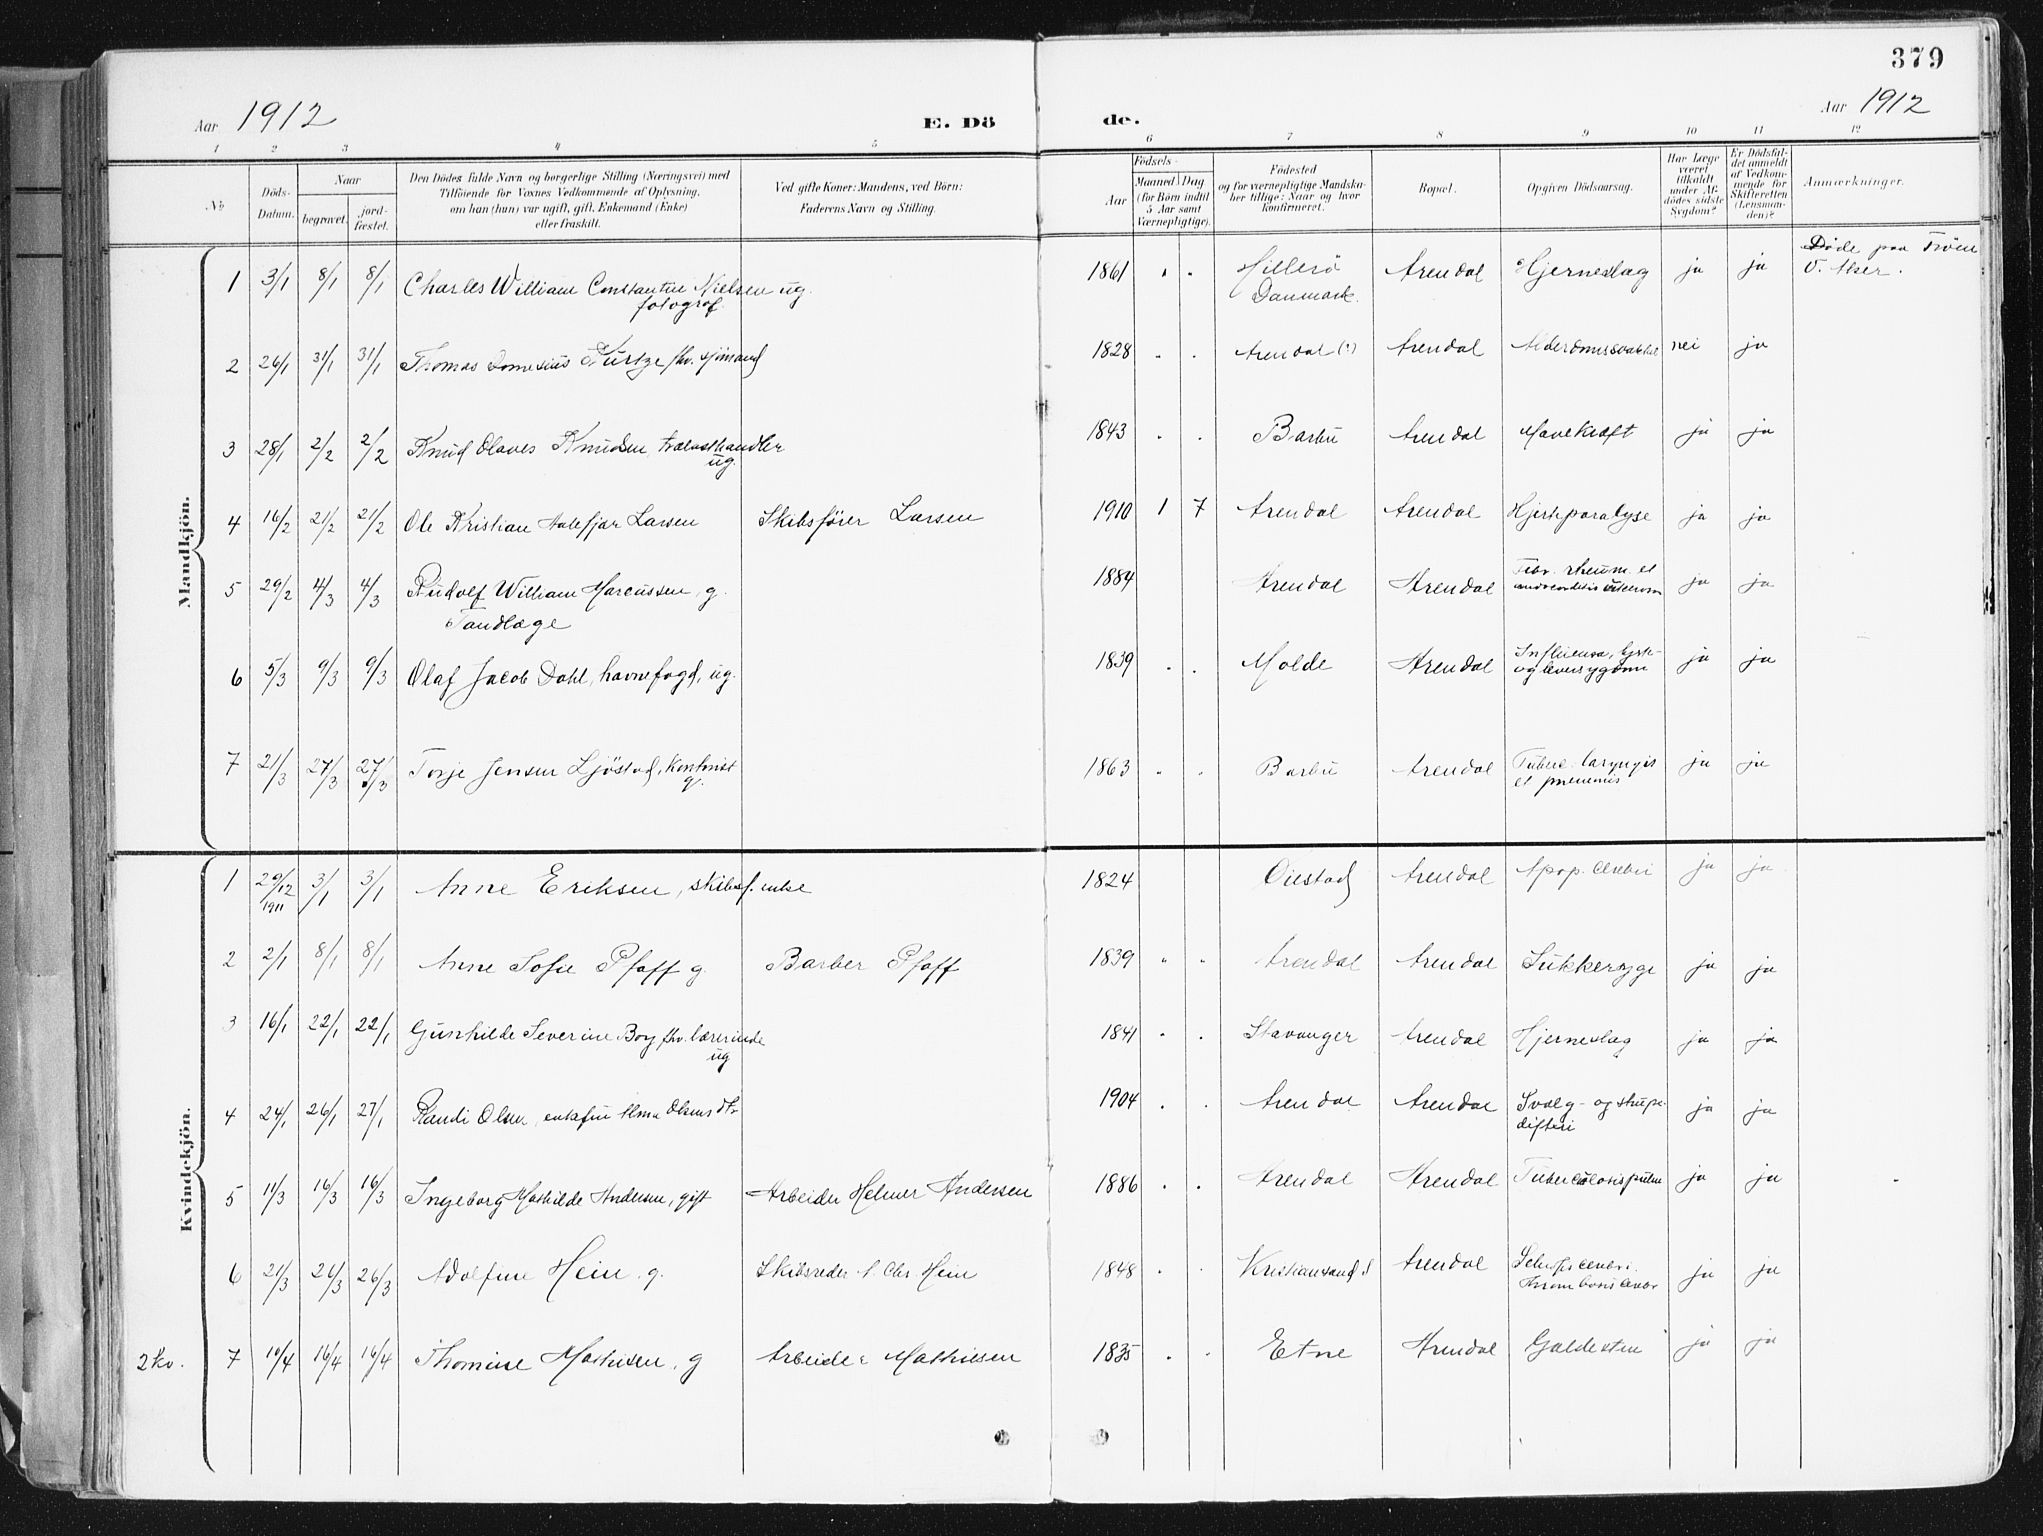 379
Aar 1912 E. Dö de. Aar 1912
1 2 3 4 5 6 7 8 9 10 11 12
№
Döds-Datum.
Naar
begravet.
jord-fæstet.
Den Dödes fulde Navn og borgerlige Stilling (Næringsvei) med
Tilföiende for Voxnes Vedkommende af Oplysning,
om han (hun) var ugift, gift, Enkemand (Enke)
eller fraskilt.
Ved gifte Koner: Mandens, ved Börn:
Faderens Navn og Stilling.
Födsels-
Aar
Maaned Dag
(for Börn indtil
5 Aar samt
Værnepligtige).
Födested
og for værnepligtige Mandska-
ber tillige: Naar og hvor
konfirmeret.
Bopæl.
Opgiven Dödsaarsag.
Har Læge
været
tilkaldt
under Af-
dödes sidste
Sygdom?
Er Dödsfal-
det anmeldt
af Vedkom-
mende for
Skifteretten
(Lensman-
den)?
Anmærkninger.
Mandkjön.
1 3/1 8/1 8/1 Charles William Constantin Nielsen ug. 1861 Hillerö Arendal Hjerneslag ja ja Döde paa Tröen
fotograf Danmark.
2 26/1 31/1 31/1 Thomas Kurtze fhv. sjömand 1828 Arendal (?) Arendal nei ja
3 28/1 2/2 2/2 Knud Olaves Knudsen, trælasthandler 1843 Barbu Arendal Mavekræft ja ja
ug.
4 16/2 21/2 21/2 Ole Kristian Larsen Skibsfører Larsen 1910 1 7 Arendal Arendal Hjerteparalyse ja ja
5 29/2 4/3 4/3 Rudolf William Marcussen, g. 1884 Arendal Arendal Febr. rheum. et ja ja
Tandlæge
6 5/3 9/3 9/3 Olaf Jacob Dahl, havnefogd, ug. 1839 Molde Arendal Influensa, hjerte- ja ja
og leversygdom
7 21/3 27/3 27/3 Torje Jensen Ljöstad, kontorist 1863 Barbu Arendal Tuberc. laryngis ja ja
g. et pneumonis
Kvindekjön.
1 29/12 1911 3/1 3/1 Anne Eriksen, skibsf. enke 1824 Öiestad Arendal Apop. cerebri ja ja
2 2/1 8/1 8/1 Anne Sofie Pfaff g. Barber Pfaff 1839 Arendal Arendal Sukkersyge ja ja
3 16/1 22/1 22/1 Gunhilde Severine Boy fhv. lærerinde 1841 Stavanger Arendal Hjerneslag ja ja
ug
4 24/1 26/1 27/1 Randi Olsen, enkefru Alma Olsens dtr 1904 Arendal Arendal Svælg- og strupe- ja ja
difteri
5 11/3 16/3 16/3 Ingeborg Mathilde Andersen, gift Arbeider Helmer Andersen 1886 Arendal Arendal Tuberculosis pulm ja ja
6 21/3 26/3 26/3 Adolfine Hein, g. Skibsreder Chr. Hein 1848 Kristiansand S Arendal ja ja
2 kv. 7 10/4 16/4 16/4 Thomine Mathisen, g Arbeider Mathisen 1835 Etne Arendal Galdesten ja ja